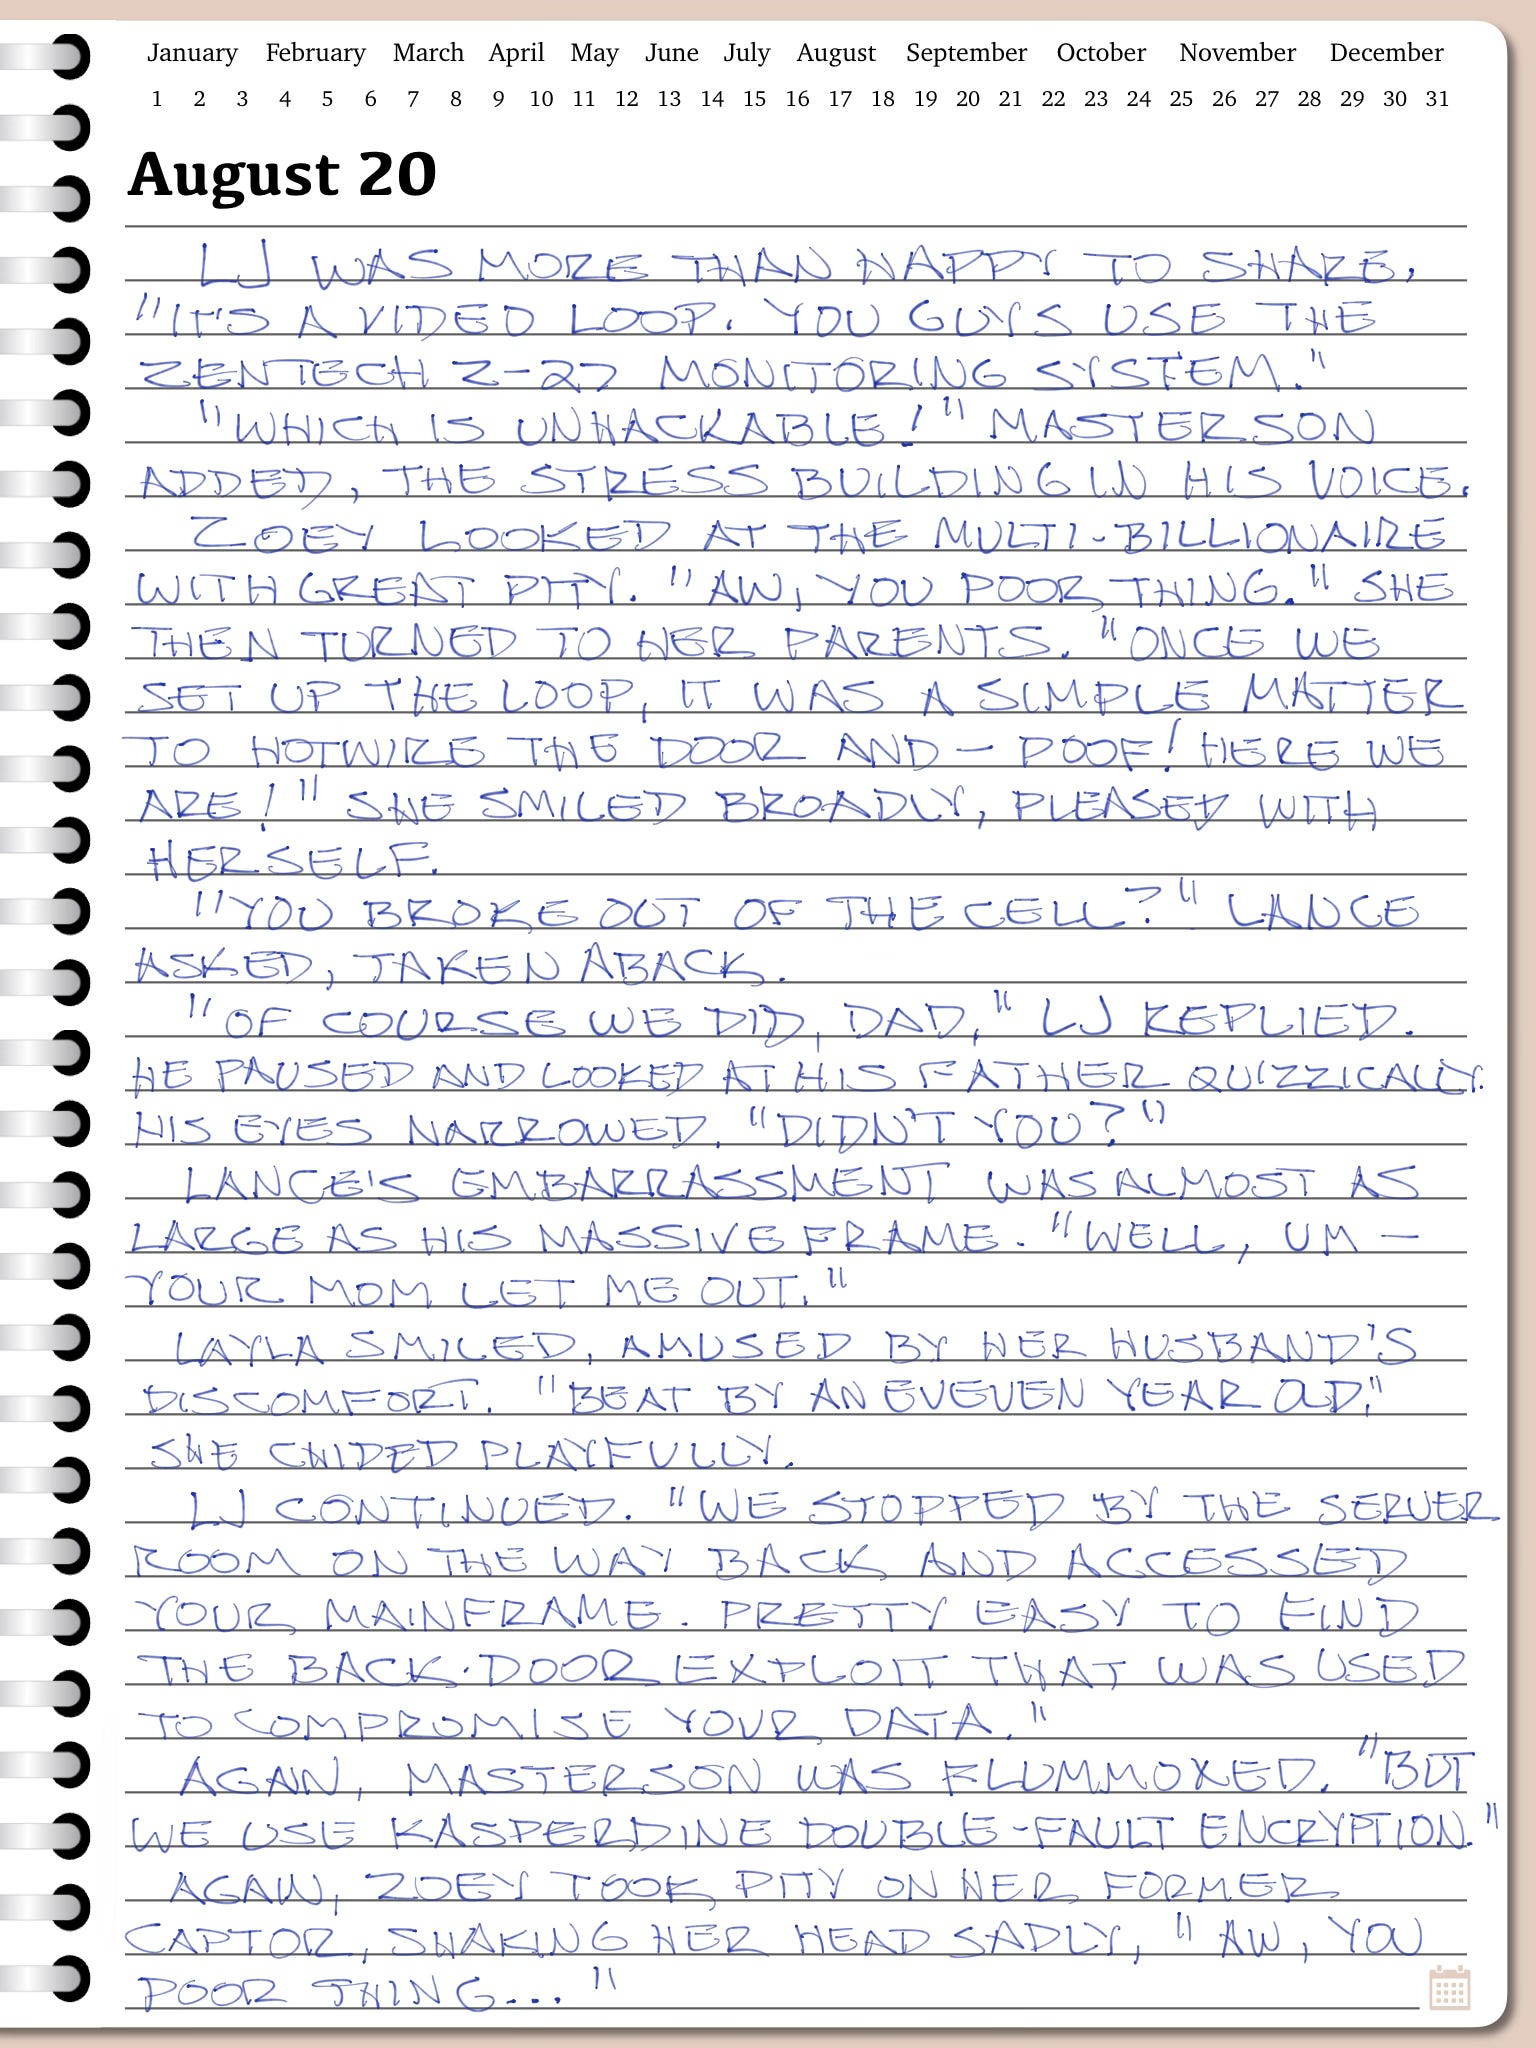 January February March April May June July August September October November December
1 2 3 4 5 6 7 8 9 10 11 12 13 14 15 16 17 18 19 20 21 22 23 24 25 26 27 28 29 30 31
August 20
LJ WAS MORE THAN HAPPY TO SHARE,
"IT'S A VIDEO LOOP. YOU GUYS USE THE
ZENTECH Z-27 MONITORING SYSTEM."
"WHICH IS UNHACKABLE!" MASTERSON
ADDED, THE STRESS BUILDING IN HIS VOICE.
ZOEY LOOKED AT THE MULTI-BILLIONAIRE
WITH GREAT PITY. "AW, YOU POOR THING." SHE
THEN TURNED TO HER PARENTS. "ONCE WE
SET UP THE LOOP, IT WAS A SIMPLE MATTER
TO HOTWIRE THE DOOR AND - POOF! HERE WE
ARE!" SHE SMILED BROADLY, PLEASED WITH
HERSELF.
"YOU BROKE OUT OF THE CELL?" LANCE
ASKED, TAKEN ABACK.
"OF COURSE WE DID, DAD," LJ REPLIED.
HE PAUSED AND LOOKED AT HIS FATHER QUIZZICALLY.
HIS EYES NARROWED. "DIDN'T YOU?"
LANCE'S EMBARRASSMENT WAS ALMOST AS
LARGE AS HIS MASSIVE FRAME. "WELL, UM -
YOUR MOM LET ME OUT."
LAYLA SMILED, AMUSED BY HER HUSBAND'S
DISCOMFORT. "BEAT BY AN EVEVEN YEAR OLD,"
SHE CHIDED PLAYFULLY.
LJ CONTINUED. "WE STOPPED BY THE SERVER
ROOM ON THE WAY BACK AND ACCESSED
YOUR MAINFRAME. PRETTY EASY TO FIND
THE BACK-DOOR EXPLOIT THAT WAS USED
TO COMPROMISE YOUR DATA."
AGAIN, MASTERSON WAS FLUMMOXED. "BUT
WE USE KASPERDINE DOUBLE-FAULT ENCRYPTION."
AGAIN, ZOEY TOOK PITY ON HER FORMER
CAPTOR, SHAKING HER HEAD SADLY, "AW, YOU
POOR THING..."